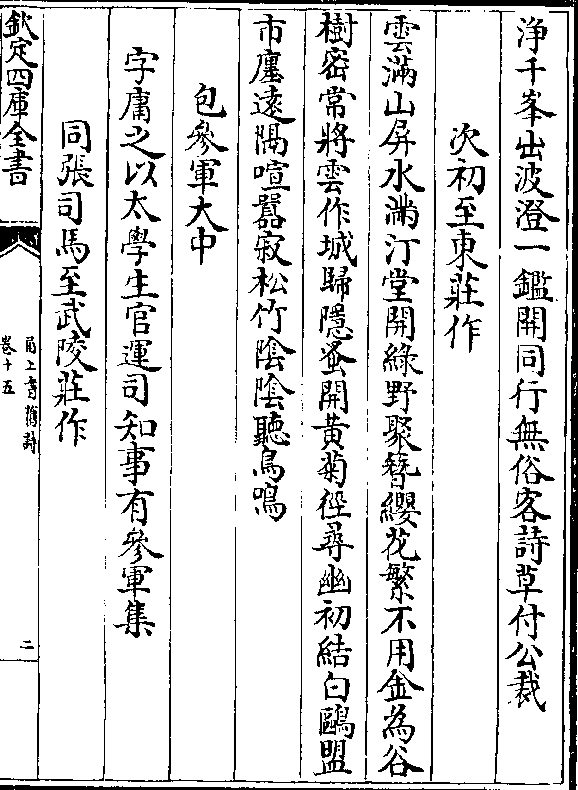 淨千峯出波澄一鑑開同行無俗客詩草付公裁
次初至東莊作
雲滿山屏水滿汀堂開綠野聚簪纓花繁不用金為谷
樹密常將雲作城歸隱蚤開黃菊徑尋幽初結白鷗盟
市廛遠隔喧囂寂松竹陰陰聽鳥鳴
包參軍大中
字庸之以太學生官運司知事有參軍集
同張司馬至武陵莊作
欽定四庫全書
甬上耆舊詩
卷十五
二